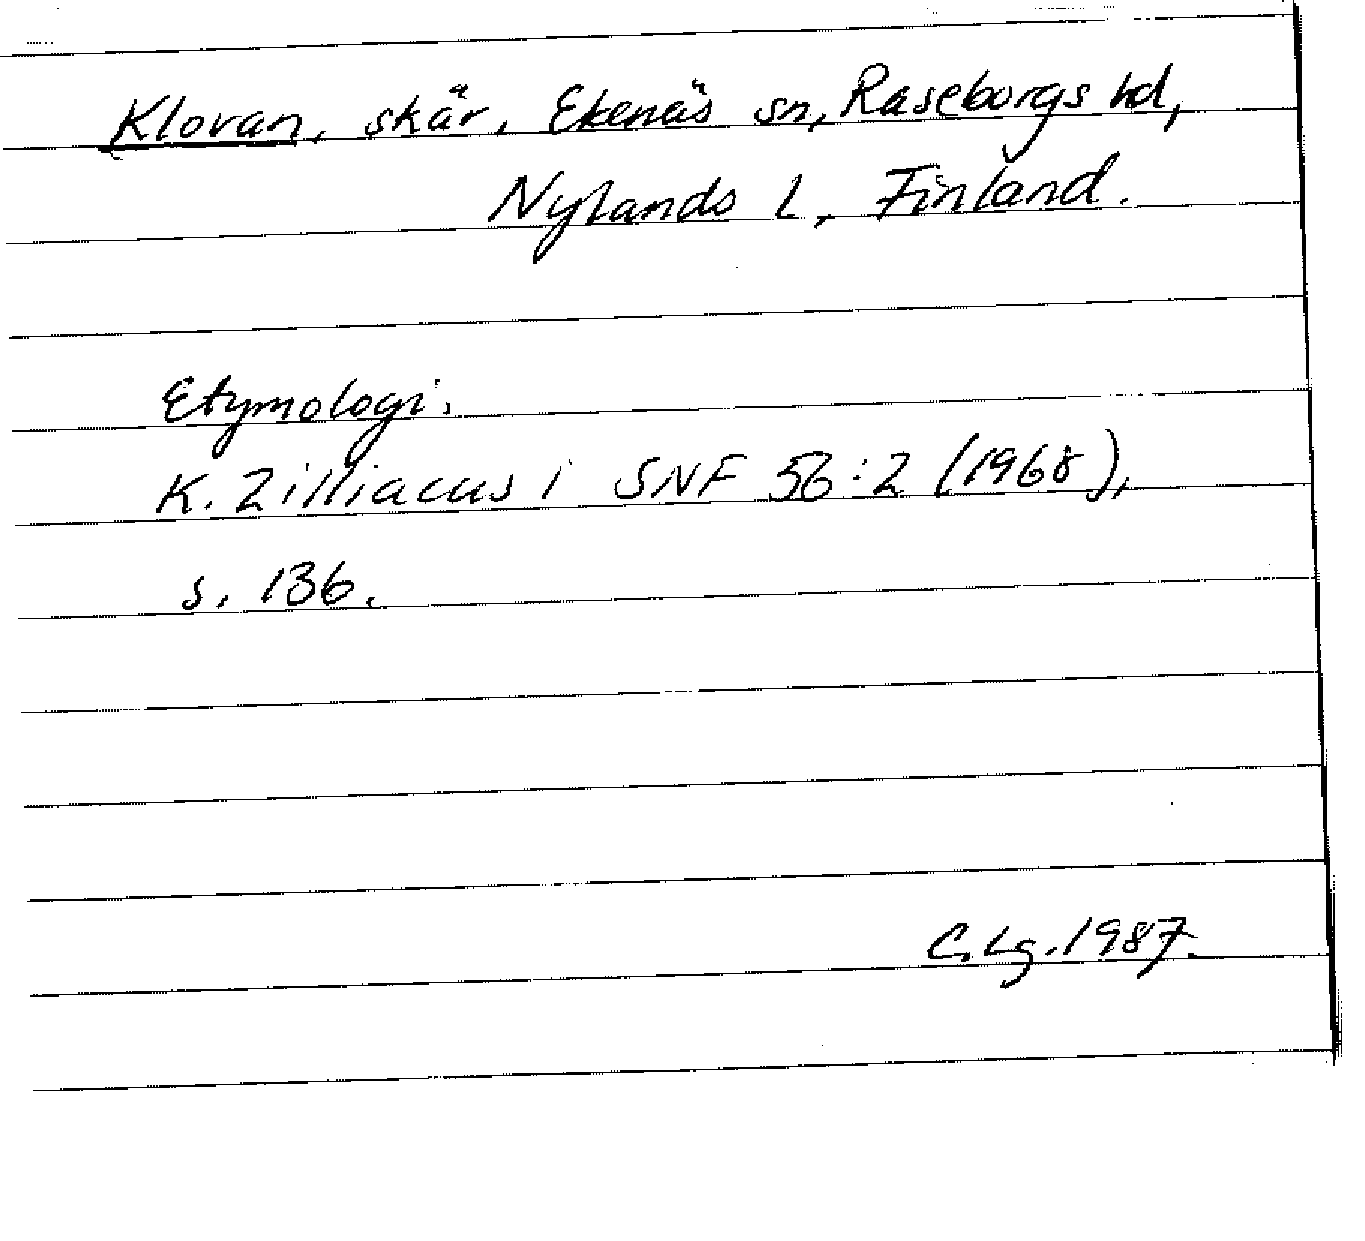 Klovan, skär, Ekenäs sn, Raseborgs hd,
Nylands l, Finland.
Etymologi:
K. Zilliacus i SNF 56:2 (1968),
s. 136.
C. Lg. 1987.